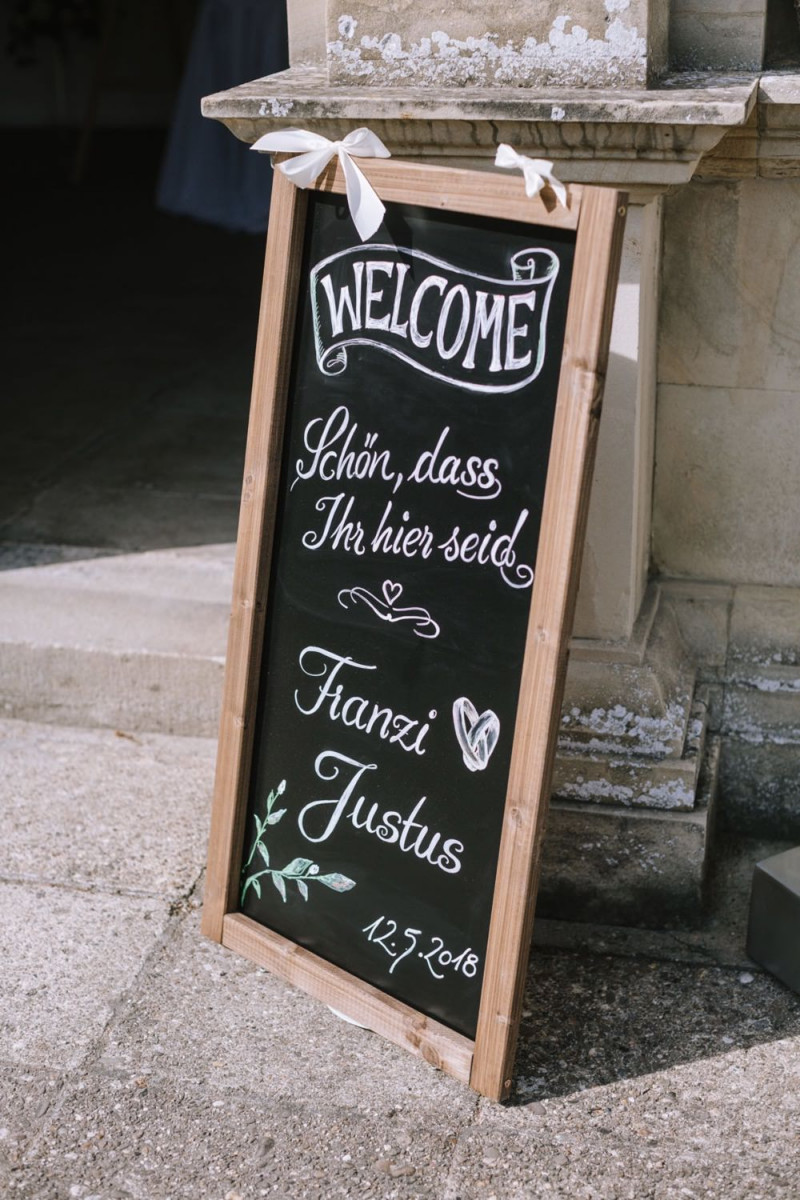 WELCOME
Schön, dass
Ihr hier seid
Franzi
Justus
12.5.2018